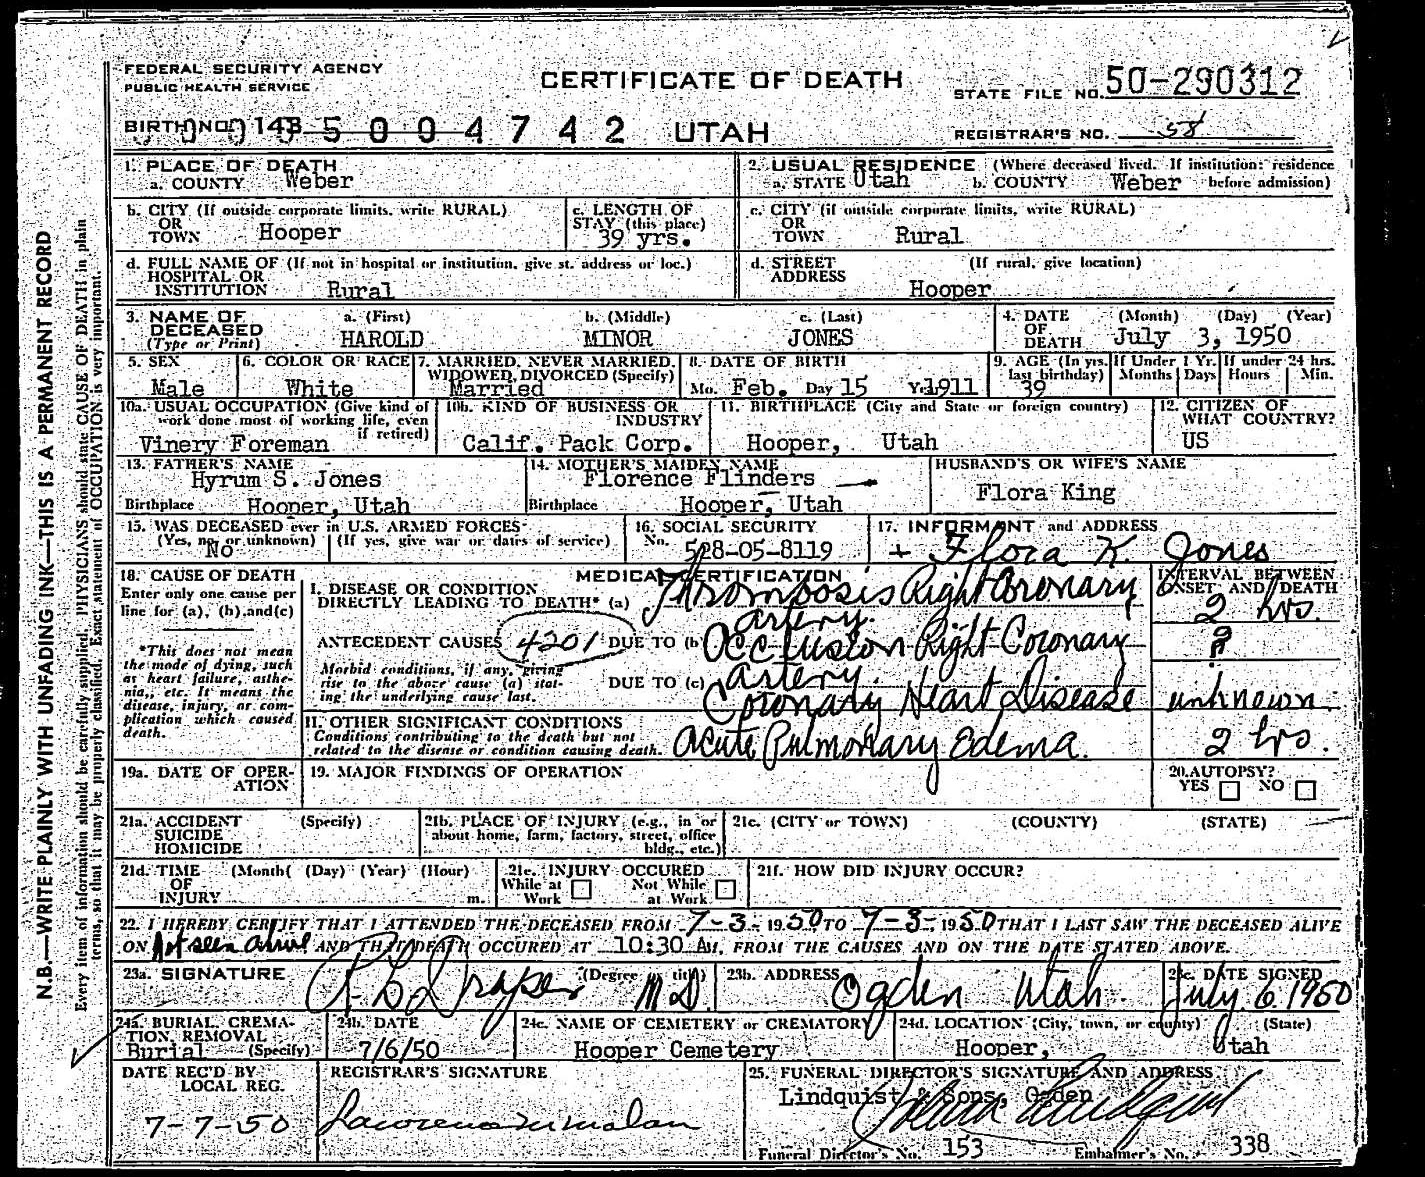 FEDERAL SECURITY AGENCY
PUBLIC HEALTH SERVICE
CERTIFICATE OF DEATH
STATE FILE NO. 50-290312
BIRTH NO. 143
5004742 UTAH
REGISTRAR'S NO. 58
1. PLACE OF DEATH
a. COUNTY Weber
2. USUAL RESIDENCE (Where deceased lived. If institution: residence
a. STATE Utah b. COUNTY Weber before admission)
b. CITY (If outside corporate limits, write RURAL)
OR
TOWN Hooper
c. LENGTH OF
STAY (this place)
39 yrs.
c. CITY (if outside corporate limits, write RURAL)
OR
TOWN Rural
d. FULL NAME OF (If not in hospital or institution, give st. address or loc.)
HOSPITAL OR
INSTITUTION Rural
d. STREET (If rural, give location)
ADDRESS
Hooper
3. NAME OF
DECEASED
(Type or Print)
a. (First) b. (Middle) c. (Last)
HAROLD MINOR JONES
4. DATE (Month) (Day) (Year)
OF
DEATH July 3, 1950
5. SEX
Male
6. COLOR OR RACE
White
7. MARRIED, NEVER MARRIED,
WIDOWED, DIVORCED (Specify)
Married
8. DATE OF BIRTH
Mo. Feb. Day 15 Yr. 1911
9. AGE (In yrs.
last birthday)
39
If Under 1 Yr.
Months Days
If under 24 hrs.
Hours Min.
10a. USUAL OCCUPATION (Give kind of
work done most of working life, even
if retired)
Vinery Foreman
10b. KIND OF BUSINESS OR
INDUSTRY
Calif. Pack Corp.
11. BIRTHPLACE (City and State or foreign country)
Hooper, Utah
12. CITIZEN OF
WHAT COUNTRY?
US
13. FATHER'S NAME
Hyrum S. Jones
Birthplace Hooper, Utah
14. MOTHER'S MAIDEN NAME
Florence Flinders
Birthplace Hooper, Utah
HUSBAND'S OR WIFE'S NAME
Flora King
15. WAS DECEASED ever in U.S. ARMED FORCES
(Yes, no, or unknown) (If yes, give war or dates of service)
No
16. SOCIAL SECURITY
No. 528-05-8119
17. INFORMANT and ADDRESS
+ Flora K. Jones
18. CAUSE OF DEATH
Enter only one cause per
line for (a), (b), and (c)
*This does not mean
the mode of dying, such
as heart failure, asthe-
nia, etc. It means the
disease, injury, or com-
plication which caused
death.
MEDICAL CERTIFICATION
I. DISEASE OR CONDITION
DIRECTLY LEADING TO DEATH* (a) Thrombosis Right Coronary
artery.
ANTECEDENT CAUSES 4201 DUE TO (b) Occlusion Right Coronary
artery.
Morbid conditions, if any, giving
rise to the above cause (a) stat-
ing the underlying cause last.
DUE TO (c) Coronary Heart Disease
II. OTHER SIGNIFICANT CONDITIONS
Conditions contributing to the death but not
related to the disease or condition causing death. Acute Pulmonary Edema.
INTERVAL BETWEEN
ONSET AND DEATH
2 hrs.
?
unknown.
2 hrs.
19a. DATE OF OPER-
ATION
19. MAJOR FINDINGS OF OPERATION
20. AUTOPSY?
YES NO
21a. ACCIDENT (Specify)
SUICIDE
HOMICIDE
21b. PLACE OF INJURY, (e.g., in or
about home, farm, factory, street, office
bldg., etc.)
21c. (CITY or TOWN) (COUNTY) (STATE)
21d. TIME (Month( (Day) (Year) (Hour)
OF
INJURY m.
21e. INJURY OCCURED
While at Work Not While at Work
21f. HOW DID INJURY OCCUR?
22. I HEREBY CERTIFY THAT I ATTENDED THE DECEASED FROM 7-3-, 1950 TO 7-3-, 1950 THAT I LAST SAW THE DECEASED ALIVE
ON Not seen alive AND THAT DEATH OCCURED AT 10:30 AM. FROM THE CAUSES AND ON THE DATE STATED ABOVE.
23a. SIGNATURE (Degree or title)
Draper M.D.
23b. ADDRESS
Ogden Utah.
23c. DATE SIGNED
July 6 1950
24a. BURIAL, CREMA-
TION, REMOVAL
Burial (Specify)
24b. DATE
7/6/50
24c. NAME OF CEMETERY or CREMATORY
Hooper Cemetery
24d. LOCATION (City, town, or county) (State)
Hooper, Utah
DATE REC'D BY
LOCAL REG.
7-7-50
REGISTRAR'S SIGNATURE
25. FUNERAL DIRECTOR'S SIGNATURE AND ADDRESS
Lindquist & Sons, Ogden
Funeral Director's No. 153 Embalmer's No. 338
N.B.—WRITE PLAINLY WITH UNFADING INK—THIS IS A PERMANENT RECORD
Every item of information should be carefully supplied. PHYSICIANS should state CAUSE OF DEATH in plain
terms, so that it may be properly classified. Exact statement of OCCUPATION is very important.